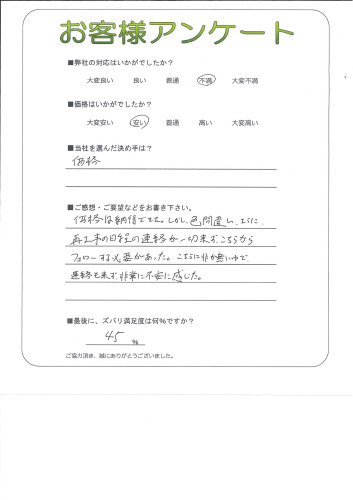 お客様アンケート
■弊社の対応はいかがでしたか？
大変良い 良い 普通 不満 大変不満
■価格はいかがでしたか？
大変安い 安い 普通 高い 大変高い
■当社を選んだ決め手は？
価格
■ご感想・ご要望などをお書き下さい。
価格は納得できた。しかし、色間違い、さらに
再工事の日程の連絡が一切来ずこちらから
フォローする必要があった。こちらに非が無いので
連絡も来ず非常に不安に感じた。
■最後に、ズバリ満足度は何%ですか？
45 %
ご協力頂き、誠にありがとうございました。